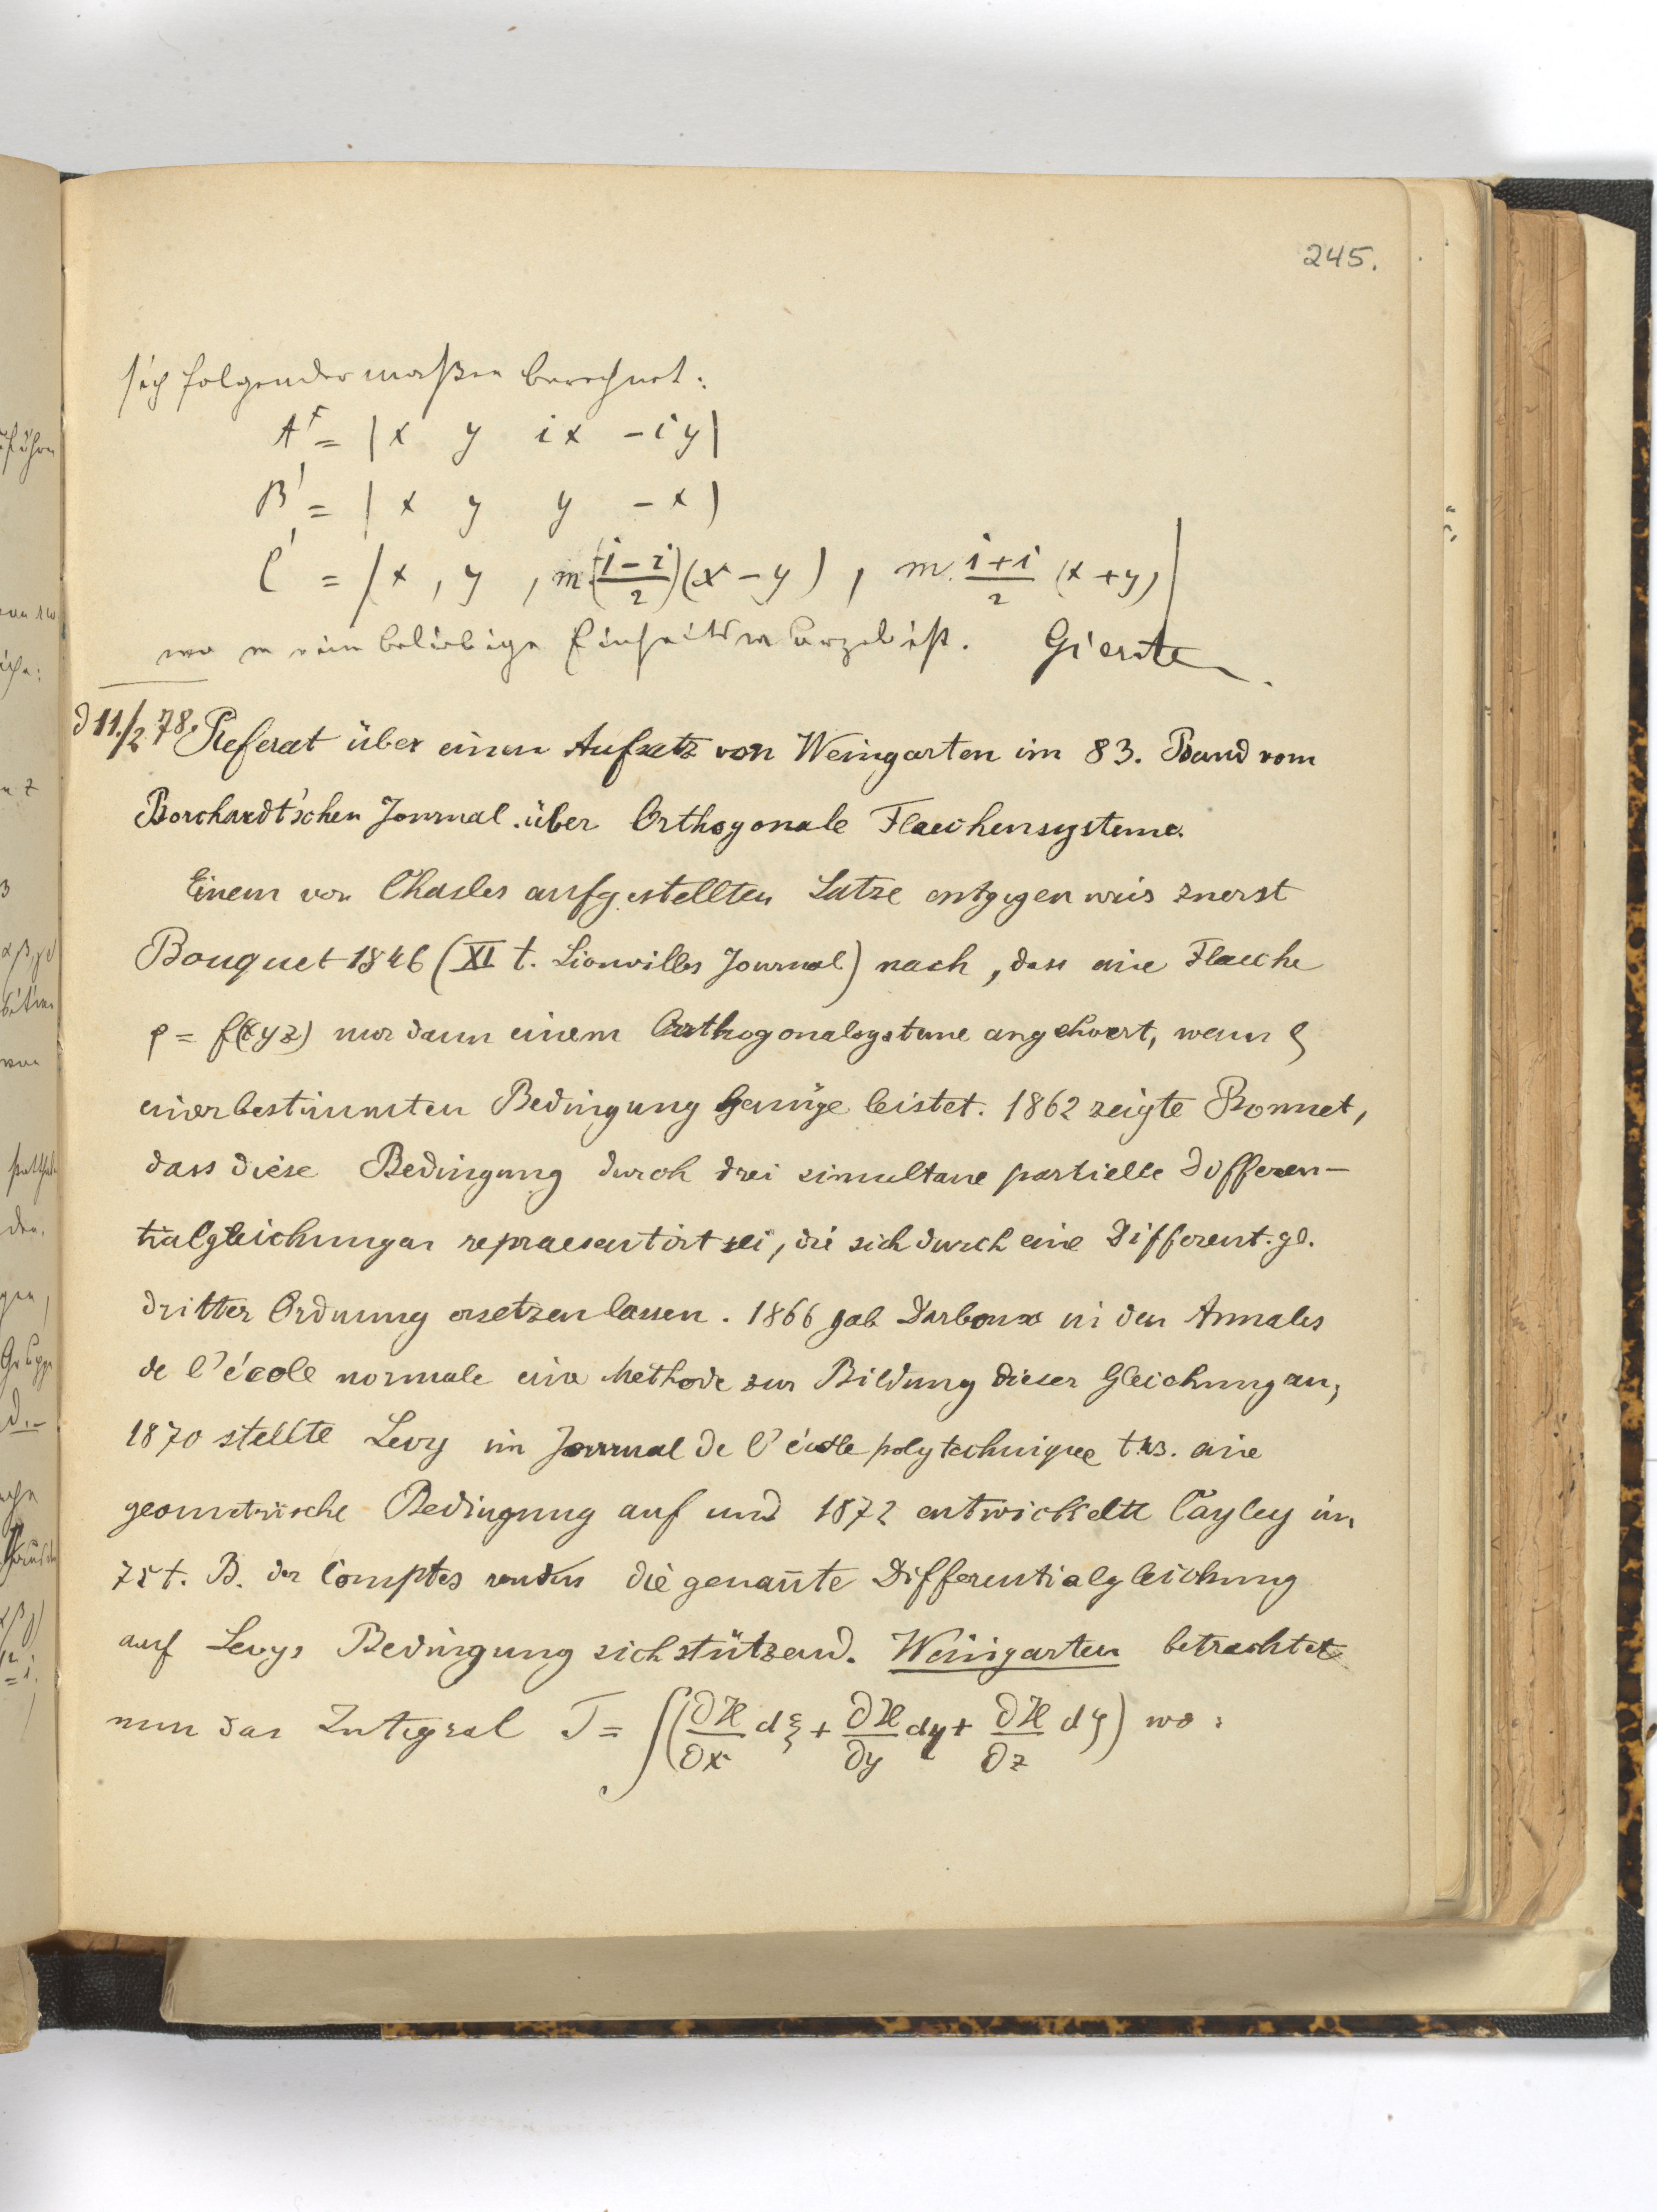 245.
sich folgendermaßen berechnet:
A' = | x y ix -iy |
B' = | x y y -x |
C' = | x, y, m(1-i)/2 (x-y), m. (1+i)/2 (x+y) |
wo m eine beliebige Einheitswurzel ist. Gierster.
d 11./2 78. Referat über einen Aufsatz von Weingarten im 83. Band vom
Borchardt'schen Journal über Orthogonale Flaechensysteme.
Einem von Chasles aufgestellten Satze entgegen wies zuerst
Bouquet 1846 (XI t. Liouvilles Journal) nach, dass eine Flaeche
ρ = f(xyz) nur dann einem Orthogonalsysteme angehoert, wenn ρ
einer bestimmten Bedingung Genüge leistet. 1862 zeigte Bonnet,
dass diese Bedingung durch drei simultane partielle Differen-
tialgleichungen repraesentirt sei, die sich durch eine Different. gl.
dritter Ordnung ersetzen lassen. 1866 gab Darboux in den Annales
de l'école normale eine Methode zur Bildung dieser Gleichung an;
1870 stellte Levy im Journal de l'école polytechnique t. 43. eine
geometrische Bedingung auf und 1872 entwickelte Cayley im
75 t. B. der Comptes rendus die genan̄te Differentialgleichung
auf Levys Bedingung sich stützend. Weingarten betrachtet
nun das Integral J = ∫(∂H/∂x dξ + ∂H/∂y dη + ∂H/∂z dζ) wo: